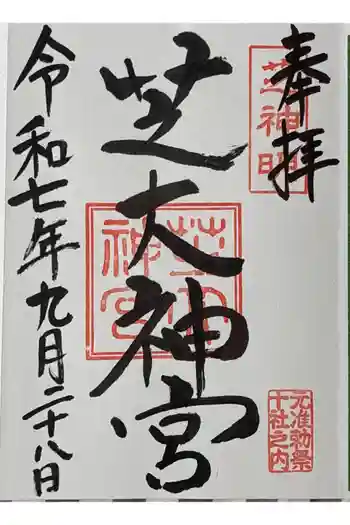 奉拝
芝神明
芝大神宮
元准勅祭
十社之内
令和七年九月二十八日